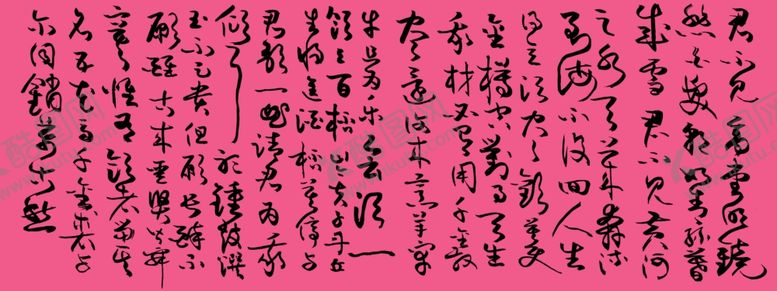 君不見高堂明鏡
悲白髮朝如青絲暮
成雪君不見黃河
之水天上來奔流
到海不復回人生
得意須盡歡莫使
金樽空對月天生
我材必有用千金散
盡還復來烹羊宰
牛且為樂會須一
飲三百杯岑夫子丹丘
生將進酒杯莫停與
君歌一曲請君為我
傾耳聽鐘鼓饌
玉不足貴但願長醉不
願醒古來聖賢皆寂
寞惟有飲者留其
名五花馬千金裘與
爾同銷萬古愁